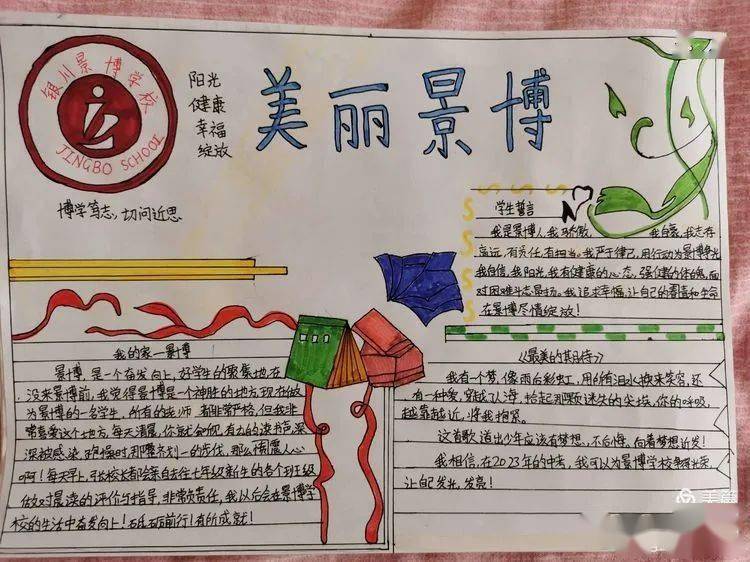 银川景博学校
JINGBO SCHOOL
阳光
健康
幸福
绽放
美丽景博
博学笃志,切问近思
学生誓言
我是景博人,我骄傲 我自豪,我志存
高远,有责任,有担当。我严于律己,用行动为景博争光
我自信,我阳光,我有健康的心态,强健的体魄,面
对困难斗志昂扬。我追求幸福,让自己的青春和生命
在景博尽情绽放!
我的家—景博
景博,是一个奋发向上,好学生的聚集地,在
没来景博前,我觉得景博是一个神胜的地方,现在做
为景博的一名学生,所有的老师 都非常严格,但我非
常喜爱这个地方,每天清晨,你就会听 有力的读书声,深
深被感染,跑操时那 齐划一的步伐,那么 震 人心
啊!每天早上,张校长都会亲自去往七年级新生的各个班级
做对晨读的评价与指导,非常负责任,我以后会在景博学
校的生活中奋发向上!砥砺前行!有所成就!
《最美的期待》
我有一个梦,像雨后彩虹,用所有泪水换来笑容,还
有一种爱,穿越了人海,拾起那颗迷失的尘埃,你的呼吸,
越靠越近,将我抱紧。
这首歌道出少年应该有梦想,不后悔,向着梦想近发!
我相信,在2023年的中考,我可以为景博学校 光荣,
让自己发光,发亮!
美篇